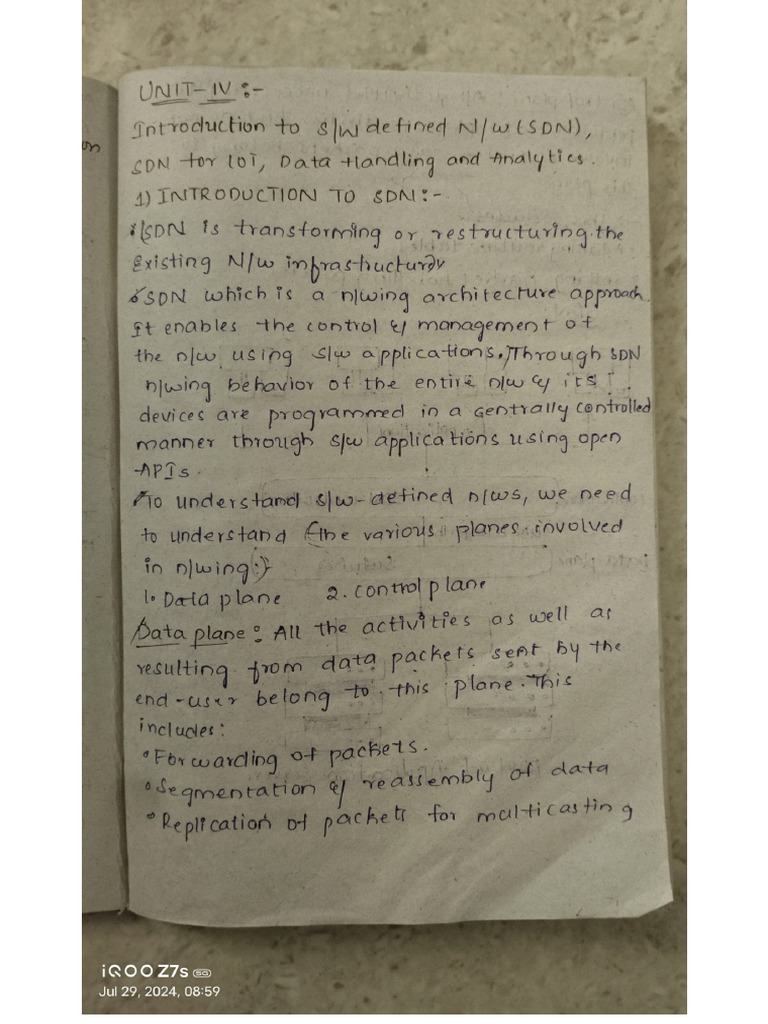 UNIT-IV :-
Introduction to S/W defined N/W (SDN),
SDN for IOT, Data Handling and Analytics.
1) INTRODUCTION TO SDN:-
SDN is transforming or restructuring the
Existing N/W infrastructure
SDN which is a n/wing architecture approach.
It enables the control & management of
the n/w using s/w applications. Through SDN
n/wing behavior of the entire n/w & its
devices are programmed in a centrally controlled
manner through s/w applications using open
APIs.
To understand s/w-defined n/ws, we need
to understand the various planes involved
in n/wing:-
1. Data plane 2. control plane
Data plane: All the activities as well as
resulting from data packets sent by the
end-user belong to this plane. This
includes:
• Forwarding of packets.
• Segmentation & reassembly of data
• Replication of packets for multicasting
iQOO Z7s 5G
Jul 29, 2024, 08:59